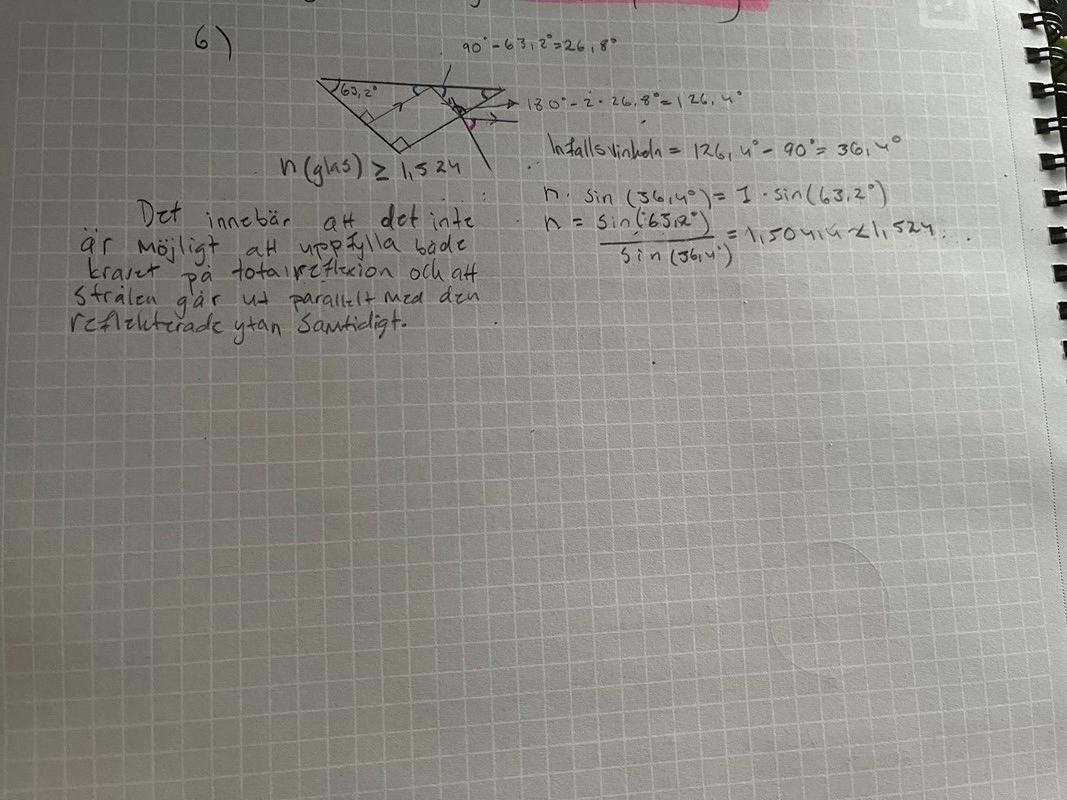 6)
90° - 63,2° = 26,8°
63,2°
180° - 2 · 26,8° = 126,4°
n(glas) ≥ 1,524
Infallsvinkeln = 126,4° - 90° = 36,4°
n · sin (36,4°) = 1 · sin(63,2°)
n = sin(63,2°) / sin(36,4°) = 1,504.. < 1,524...
Det innebär att det inte
är möjligt att uppfylla både
kravet på totalreflexion och att
strålen går ut parallelt med den
reflekterade ytan samtidigt.